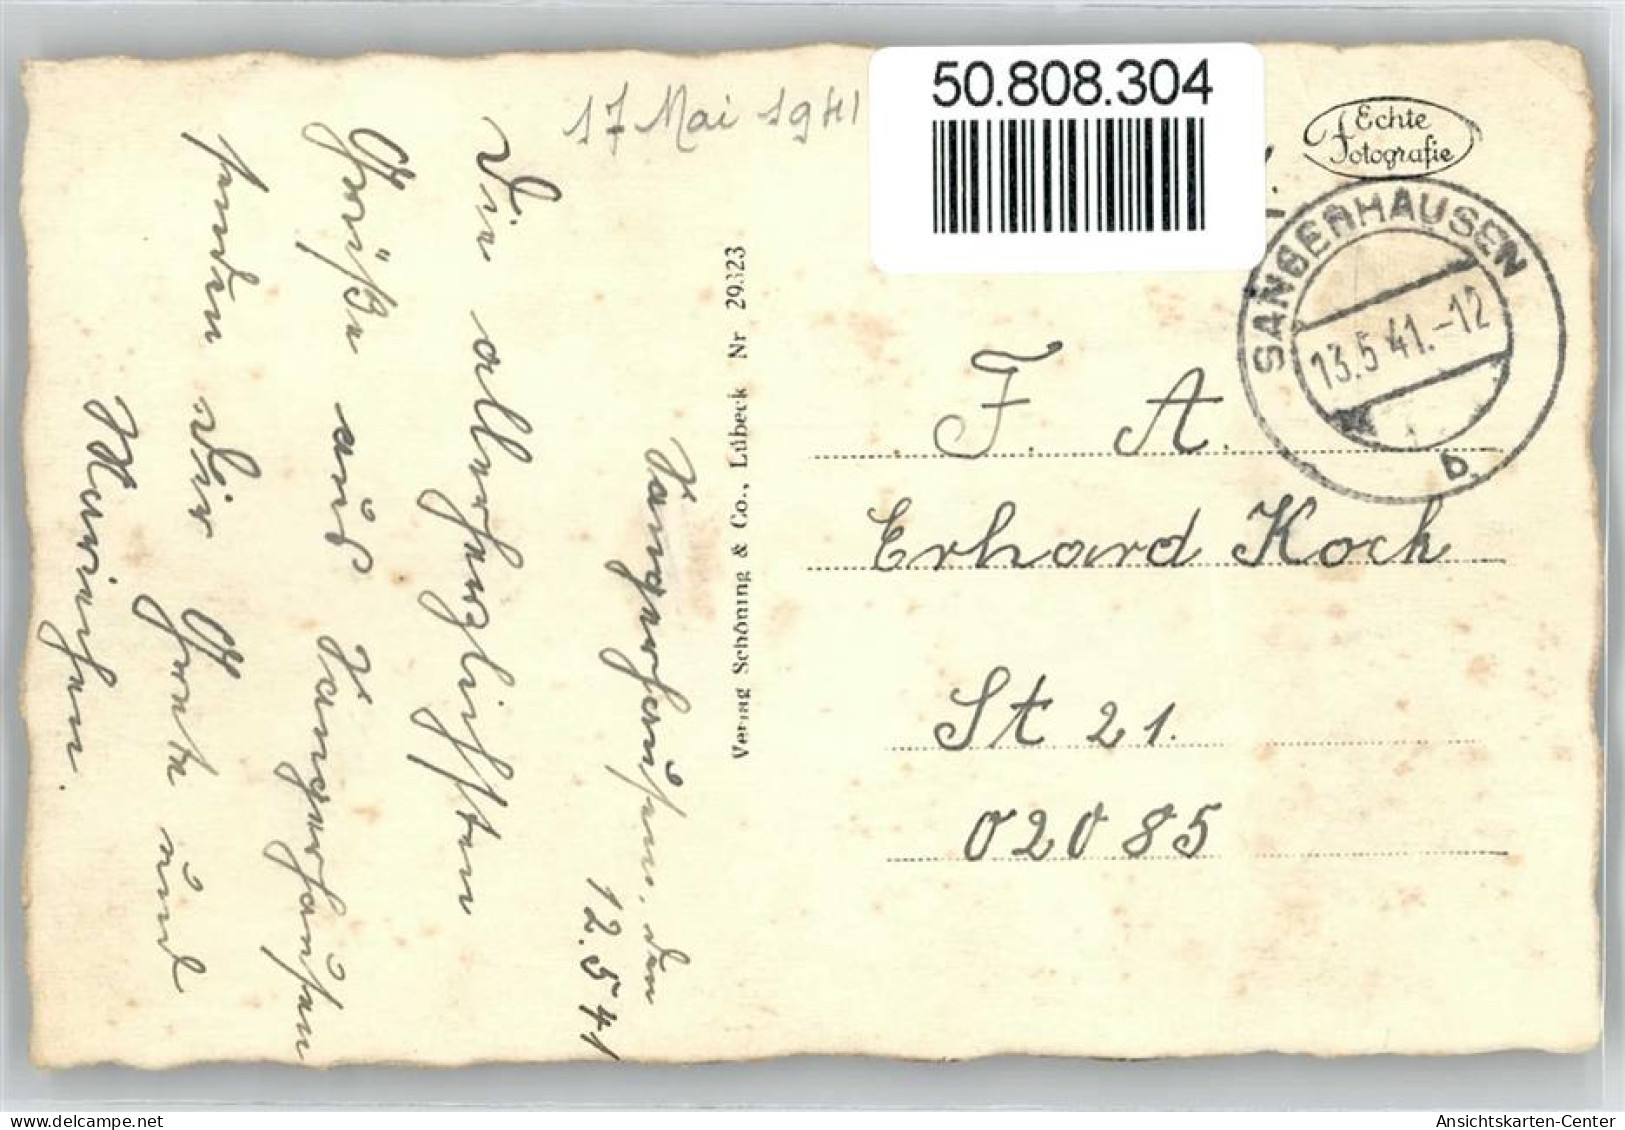 17 Mai 1941
50.808.304
Echte
Fotografie
SANGERHAUSEN
13.5.41.-12
b
Sangerhausen, den
12.5.41
Die allerherzlichsten
Grüße aus Sangerhausen
senden Dir Grete und
Mariechen.
Verlag Schöning & Co., Lübeck Nr 29323
F. A.
Erhard Koch
St 21.
02085
Ansichtskarten-Center